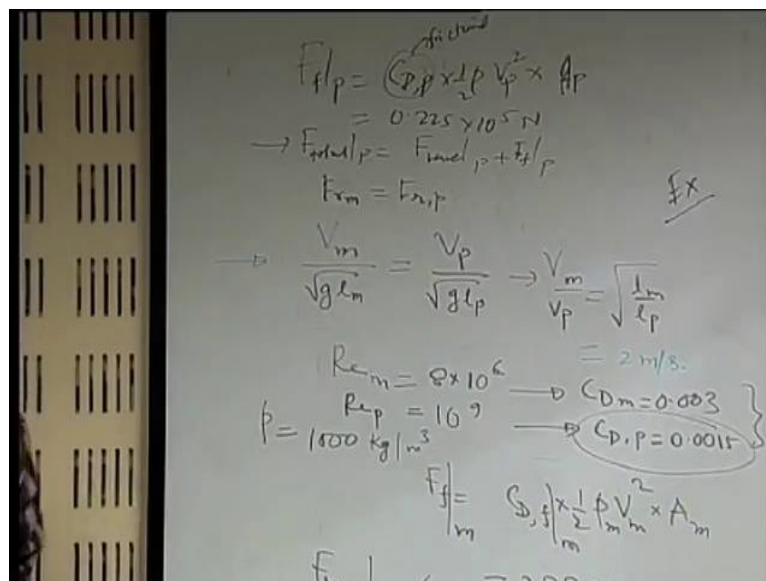 frictional
F_f|_p = C_D,p × 1/2 ρ V_p^2 × A_p
= 0.225 × 10^5 N
→ F_total|_p = F_wave|_p + F_f|_p
Fr_m = Fr,p
Ex
→ V_m/√(g l_m) = V_p/√(g l_p) → V_m/V_p = √(l_m/l_p)
= 2 m/s.
Re_m = 8×10^6 → C_Dm = 0.003
Re_p = 10^9 → C_D,p = 0.0015
ρ = 1000 kg/m^3
F_f|_m = C_D,f|_m × 1/2 ρ_m V_m^2 × A_m